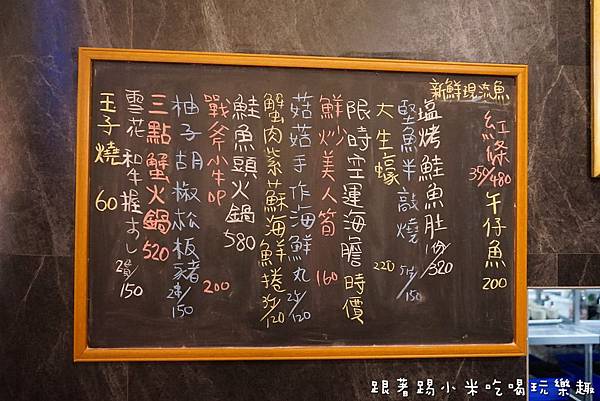 新鮮現流魚
紅條 350/480 午仔魚 200
塩烤鮭魚肚 1份/320
堅魚半敲燒 5片/150
大生蠔 220
限時空運海膽時價
鮮炒美人筒 160
菇菇手作海鮮丸 2串/120
蟹肉紫蘇海鮮捲 3串/120
鮭魚頭火鍋 580
戰斧小牛OP 200
柚子胡椒松板豬 2串/150
三點蟹火鍋 520
雪花和牛握すし 2貫/150
王子燒 60
跟著踢小米吃喝玩樂趣